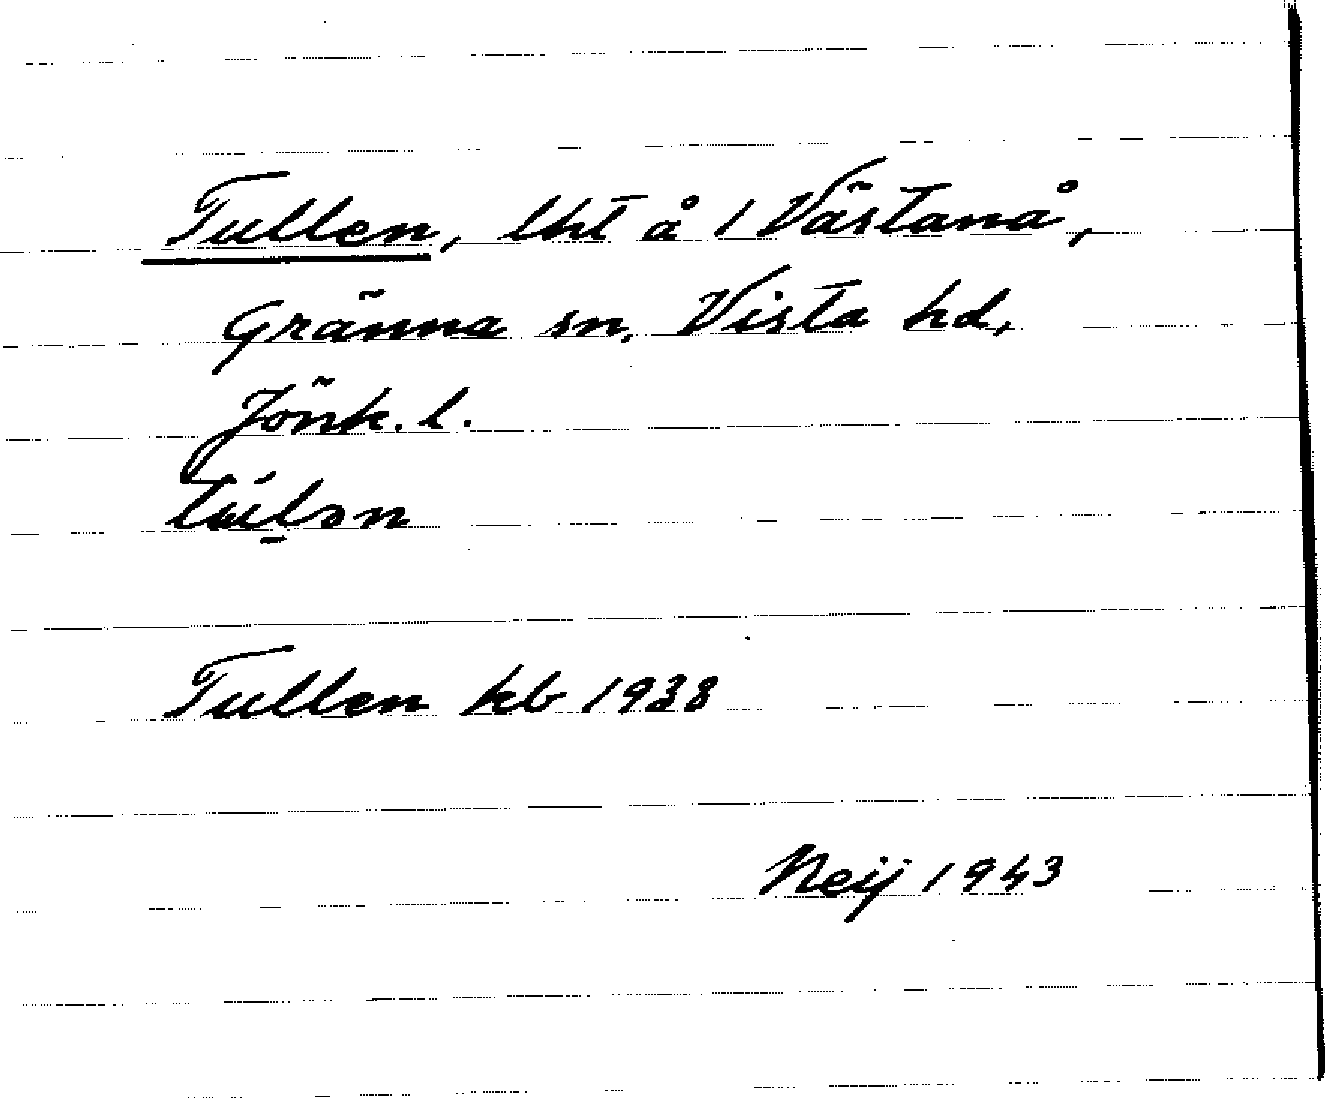 Tullen, lht å 1 Västanå,
Gränna sn, Vista hd,
Jönk. l.
Tullen kb 1938
Neij 1943